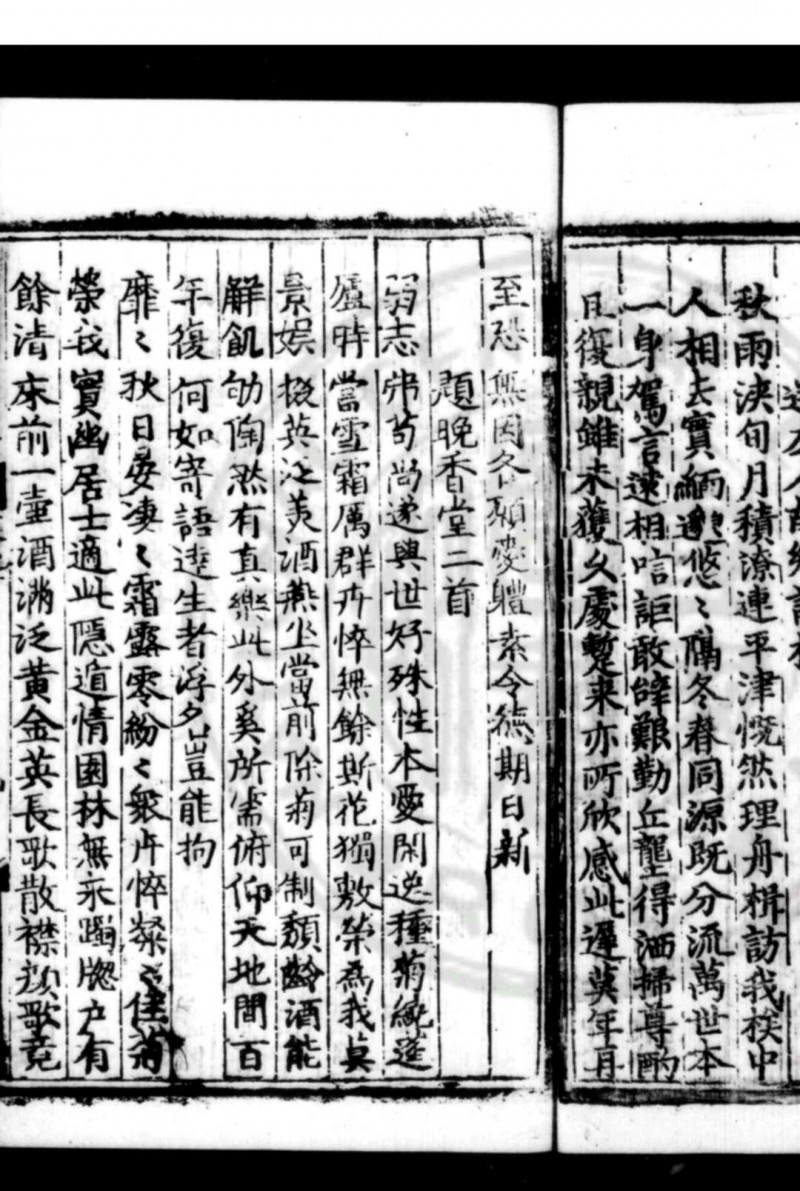 秋雨浹旬月積潦連平津慨然理舟楫訪我族中
人相去實緬邈悠〻隔冬春同源既分流萬世本
一身駕言遠相唁詎敢辞艱勤丘壟得洒掃尊酌
且復親雖未獲久處蹔来亦所欣感此遲莫年肯
至恐無因各願愛軆素令徳期日新
題晚香堂二首
弱志弗苟尚遂與世好殊性本愛閑逸種菊繞蓬
廬時當雪霜厲群卉悴無餘斯花獨敷榮為我莫
景娯掇英泛美酒燕坐當前除菊可制頽齡酒能
解飢劬陶然有真樂此外奚所需俯仰天地間百
年復何如寄語逹生者浮名豈能拘
靡〻秋日晏凄〻霜露零紛〻衆卉悴粲〻佳菊
榮我實幽居士適此隱逍情園林無来躅牕户有
餘清床前一壷酒滿泛黄金英長歌散襟顔歌竟